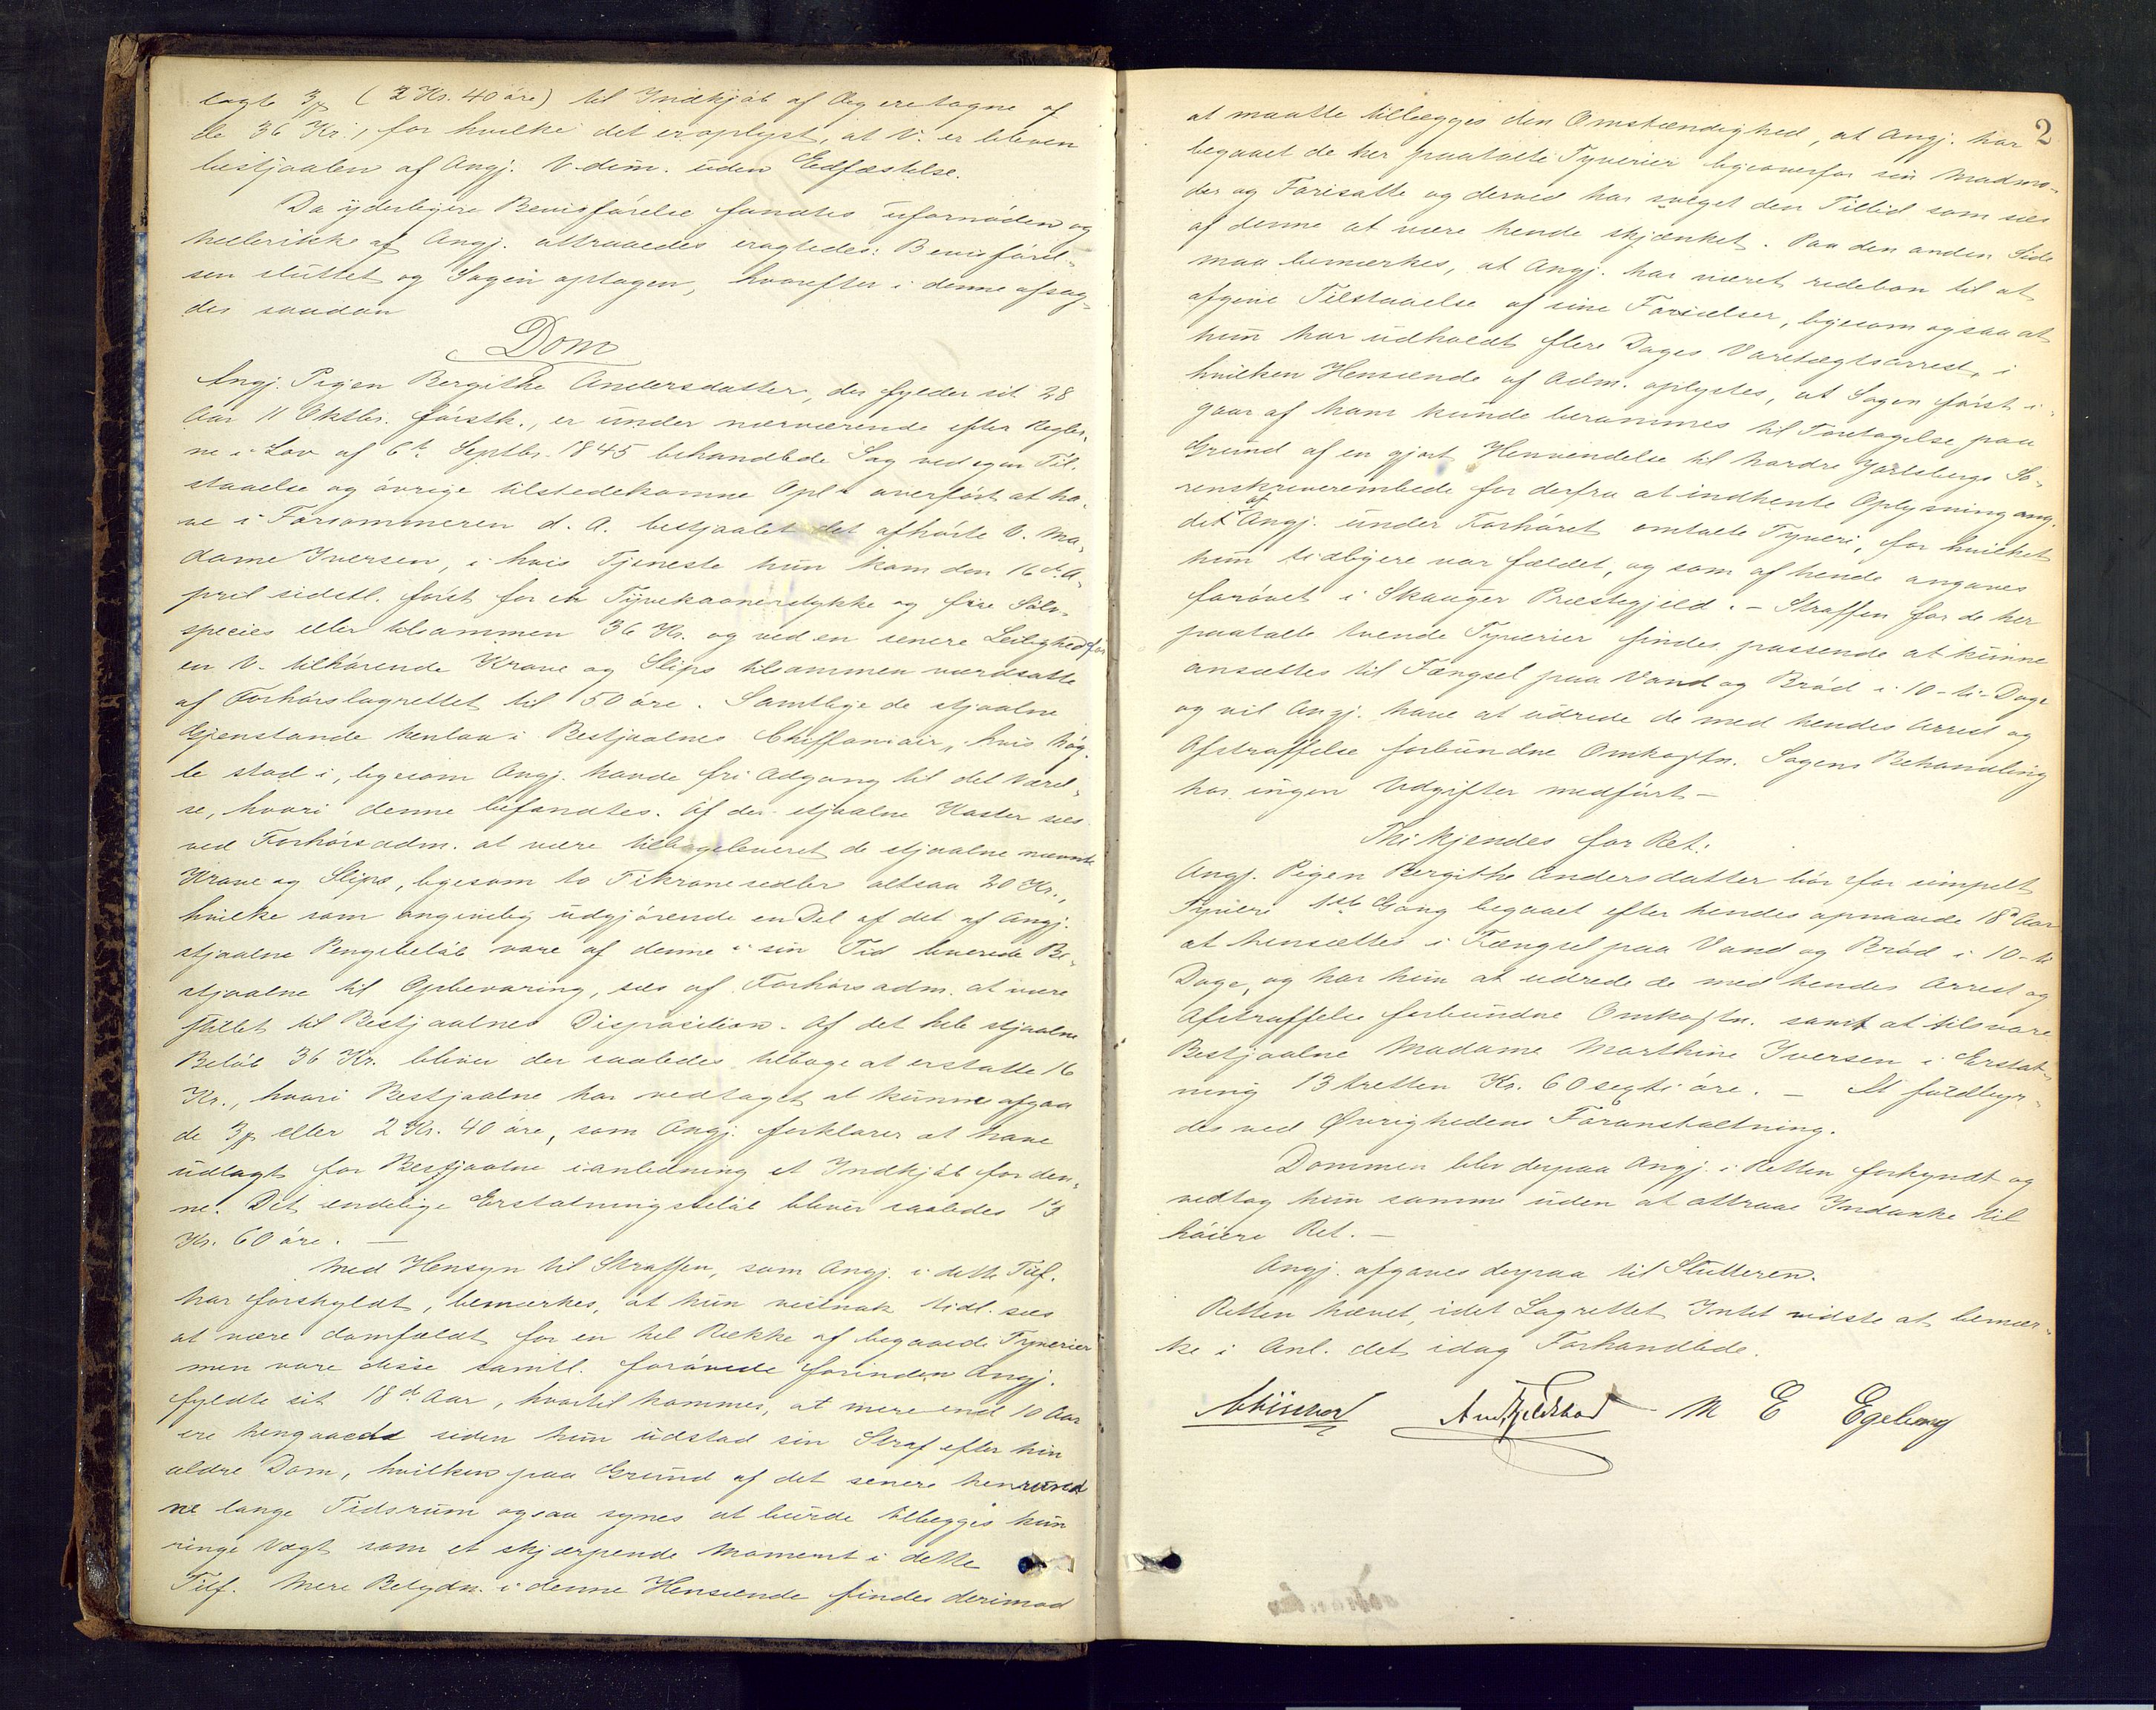 lagte 3/# (2 Kr. 40 öre) til Indkjøb af Æg eretagne af
de 36 Kr., for hvilke det er oplyst, at V. er bleven
bestjaalen af Angj. V. dim. uden Edfæstelse.
Da yderligere Bevisførelse fandtes ufornøden og
hellerikke af Angj. attraaedes eragtedes: Bevisførel-
sen sluttet og Sagen optagen, hvorefter i denne afsag-
des saadan
Dom
Angj. Pigen Bergithe Andersdatter, der fylder sit 28
Aar 11 Oktbr. førstk., er under nærværende efter Regler-
ne i Lov af 6te Septbr. 1845 behandlede Sag ved egen Til-
staaelse og øvrige tilstedekomne Opl. overført at ha-
ve i Forsommeren d. A. bestjaalet det afhørte V. Ma-
dame Iversen, i hvis Tjeneste hun kom den 16de A-
pril sidstl. først for en Tyvekronerstykke og fire Sølv-
species eller tilsammen 36 Kr. og ved en senere Leilighed for
en V. tilhørende Krave og Slips tilsammen værdsatte
af Forhørslagrettet til 50 øre. Samtlige de stjaalne
Gjenstande henlaa i Bestjaalnes Chiffoniair, hvis Nøg-
le stod i, ligesom Angj. havde fri Adgang til det Værel-
se, hvori denne befandtes. Af de stjaalne Koster sees
ved Forhørsadm. at være tilbageleveret de stjaalne nævnte
Krave og Slips, ligesom to Tikronesedler altsaa 20 Kr.,
hvilke som angivelig udgjørende en Del af det af Angj.
stjaalne Pengebeløb vare af denne i sin Tid leverede Be-
stjaalne til Opbevaring, sees af Forhørsadm. at være
stillet til Bestjaalnes Disposition. Af det hele stjaalne
Beløb 36 Kr. bliver der saaledes tilbage at erstatte 16
Kr., hvori Bestjaalne har vedtaget at kunne afgaa
de 3/# eller 2 Kr. 40 øre, som Angj. forklarer at have
udlagt for Bestjaalne i anledning et Indkjøb for den-
ne. Det endelige Erstatningsbeløb bliver saaledes 13
Kr. 60 øre. —
Med Hensyn til Straffen, som Angj. i dette Tilf.
har forskyldt, bemærkes, at hun vistnok tidl. sees
at være domfældt for en hel Række af begaaede Tyverier
men vare disse samtl. forøvede forinden Angj.
fyldte sit 18de Aar, hvortil kommer, at mere end 10 Aar
ere hengaaede siden hun udstod sin Straf efter hin
ældre Dom, hvilken paa Grund af det senere henrund-
ne lange Tidsrum ogsaa synes at burde tillægges kun
ringe Vægt som et skjærpende Moment i dette
Tilf. Mere Betydn. i denne Henseende findes derimod
2
at maatte tillægges den Omstændighed, at Angj. har
begaaet de her paatalte Tyverier ligeoverfor sin Madmo-
der og Foresatte og derved har sveget den Tillid som sees
af denne at være hende skjænket. Paa den anden Side
maa bemærkes, at Angj. har været redebon til at
afgive Tilstaaelse af sine Forseelser, ligesom ogsaa at
hun har udholdt flere Dages Varetægtsarrest, i
hvilken Henseende af Adm. oplystes, at Sagen først i-
gaar af ham kunde berammes til Foretagelse paa
Grund af en gjort Henvendelse til Nordre Jarlsbergs So-
renskriverembede for derfra at indhente Oplysning ang.
det af Angj. under Forhøret omtalte Tyveri, for hvilket
hun tidligere var fældet, og som af hende angaves
forøvet i Skauger Præstegjeld. — Straffen for de her
paatalte tvende Tyverier findes passende at kunne
ansættes til Fængsel paa Vand og Brød i 10-ti-Dage
og vil Angj. have at udrede de med hendes Arrest og
Afstraffelse forbundne Omkostn. Sagens Behandling
har ingen Udgifter medført —
Thi kjendes for Ret:
Angj. Pigen Bergithe Andersdatter bør for simpelt
Tyveri 1ste Gang begaaet efter hendes opnaaede 18de Aar
at hensættes i Fængsel paa Vand og Brød i 10-ti
Dage, og har hun at udrede de med hendes Arrest og
Afstraffelse forbundne Omkostn. samt at tilsvare
Bestjaalne Madame Marthine Iversen i Erstat-
ning 13 tretten Kr. 60 sexti øre. — At fuldbyr-
des ved Øvrighedens Foranstaltning.
Dommen blev derpaa Angj. i Retten forkyndt og
vedtog hun samme uden at attraae Indanke til
høiere Ret. —
Angj. afgaves derpaa til Slutteren.
Retten hævet, idet Lagrettet Intet vidste at bemær-
ke i Anl. det idag Forhandlede.
And Fjeldstad M E Egeberg